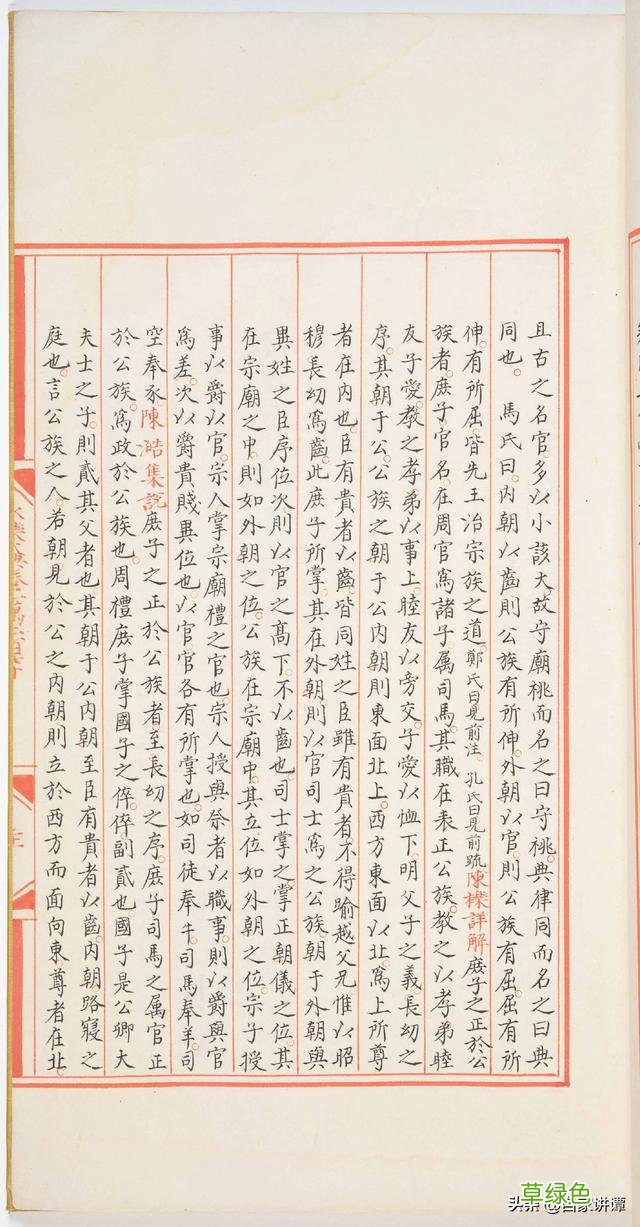 且古之名官。多以小該大。故守廟祧而名之曰守祧。典律同而名之曰典
同也。 馬氏曰。内朝以齒則公族有所伸。外朝以官。則公族有屈。屈有所
伸。有所屈。皆先王治宗族之道。鄭氏曰見前注。孔氏曰見前疏。陳櫟詳解庶子之正於公
族者。庶子。官名。在周官爲諸子属司馬。其職在表正公族。教之以孝弟睦
友子愛。教之孝弟以事上睦友以旁交。子愛以恤下。明父子之義。長幼之
序。其朝于公。公族之朝于公内朝則東面北上。西方東面以北爲上所尊
者在内也。臣有貴者以齒。皆同姓之臣雖有貴者。不得踰越父兄惟以昭
穆長幼爲齒。此庶子所掌。其在外朝。則以官。司士爲之。公族。朝于外朝與
異姓之臣序位次則以官之髙下。不以齒也。司士掌之。掌正朝儀之位。其
在宗廟之中。則如外朝之位。公族在宗廟中。其立位如外朝之位。宗子授
事以爵以官。宗人掌宗廟禮之官也。宗人授與祭者以職事。則以爵與官
爲差。次以爵貴賤異位也。以官。官各有所掌也。如司徒奉牛。司馬奉羊。司
空奉豕。陳澔集説庶子之正於公族者。至長幼之序。庶子司馬之属官正
於公族。爲政於公族也。周禮庶子掌國子之倅。倅。副貳也。國子是公卿大
夫士之子。則貳其父者也。其朝于公内朝至臣有貴者以齒。内朝路寢之
庭也。言公族之人。若朝見於公之内朝則立於西方而面向東。尊者在北。
头条 @百家讲谭
草绿色